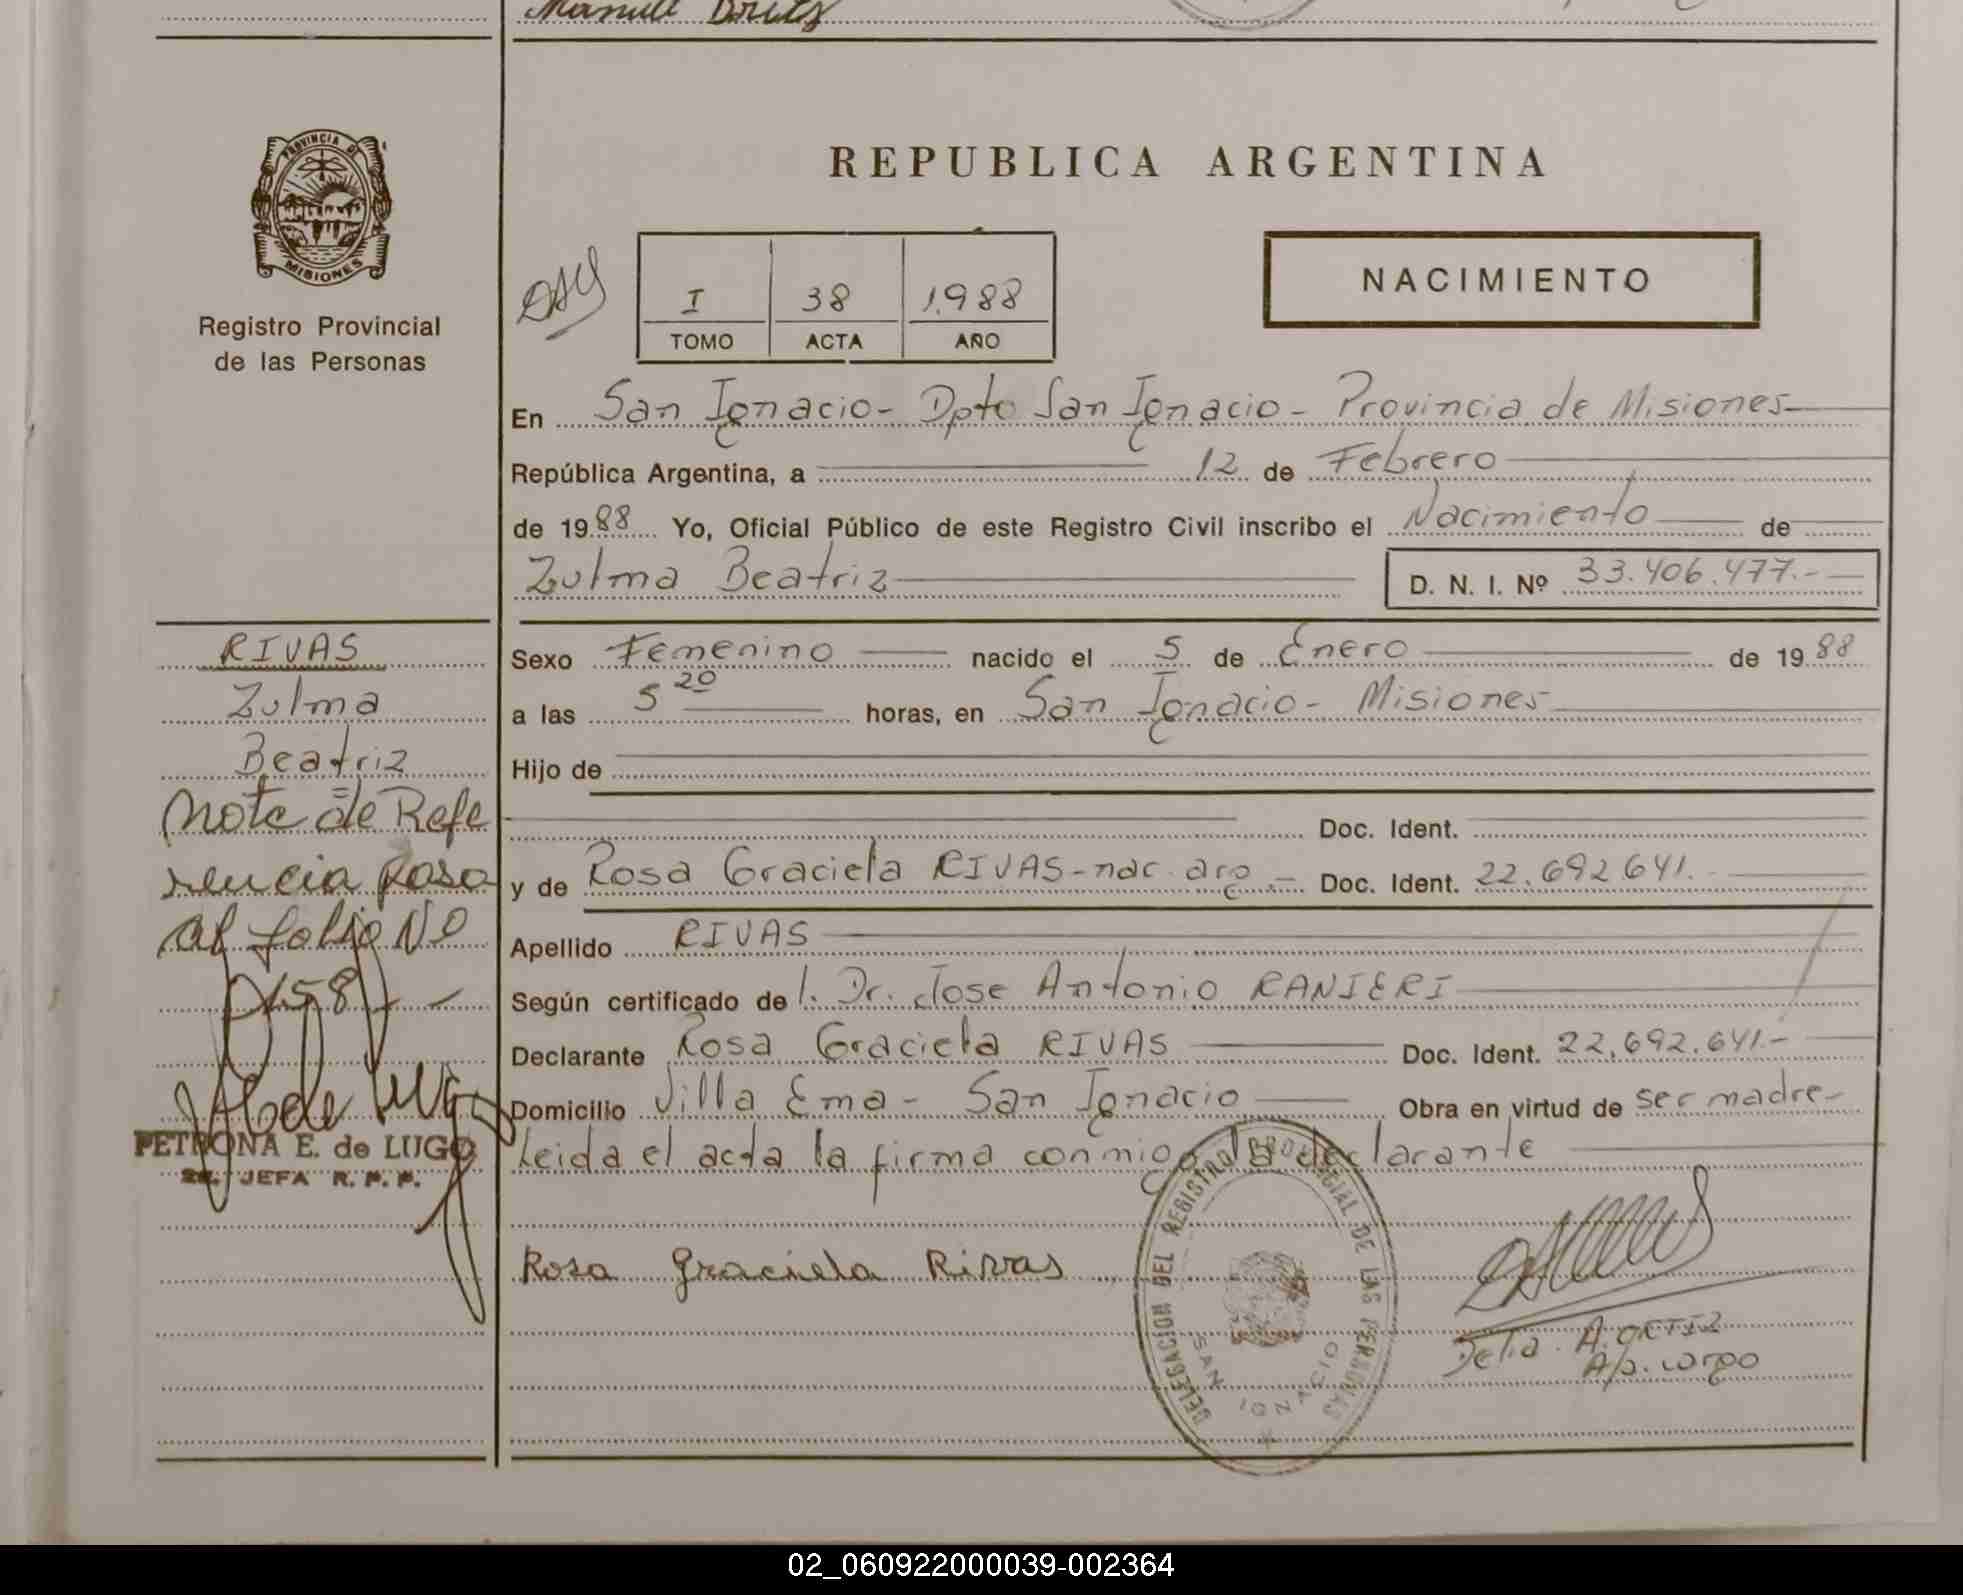 Manuel
PROVINCIA DE
MISIONES
Registro Provincial
de las Personas
REPUBLICA ARGENTINA
I 38 1.988
TOMO ACTA AÑO
NACIMIENTO
En San Ignacio - Dpto San Ignacio - Provincia de Misiones
República Argentina, a 12 de Febrero
de 1988 Yo, Oficial Público de este Registro Civil inscribo el Nacimiento de
Zulma Beatriz D. N. I. Nº 33.406.477.-
RIVAS
Zulma
Beatriz
Nota de Refe
rencia pasa
al folio Nº
158
PETRONA E. de LUGO
2ª. JEFA R. P. P.
Sexo Femenino nacido el 5 de Enero de 1988
a las 5 20 horas, en San Ignacio - Misiones
Hijo de
Doc. Ident.
y de Rosa Graciela RIVAS - nac. arg.- Doc. Ident. 22.692.641.
Apellido RIVAS
Según certificado del. Dr. Jose Antonio RANIERI
Declarante Rosa Graciela RIVAS Doc. Ident. 22.692.641.-
Domicilio Villa Ema - San Ignacio Obra en virtud de ser madre-
Leida el acta la firma conmigo la declarante
Rosa Graciela Rivas
DELEGACION DEL REGISTRO PROVINCIAL DE LAS PERSONAS
SAN IGNACIO
Delia A. ORTIZ
A/p. cargo
02_060922000039-002364